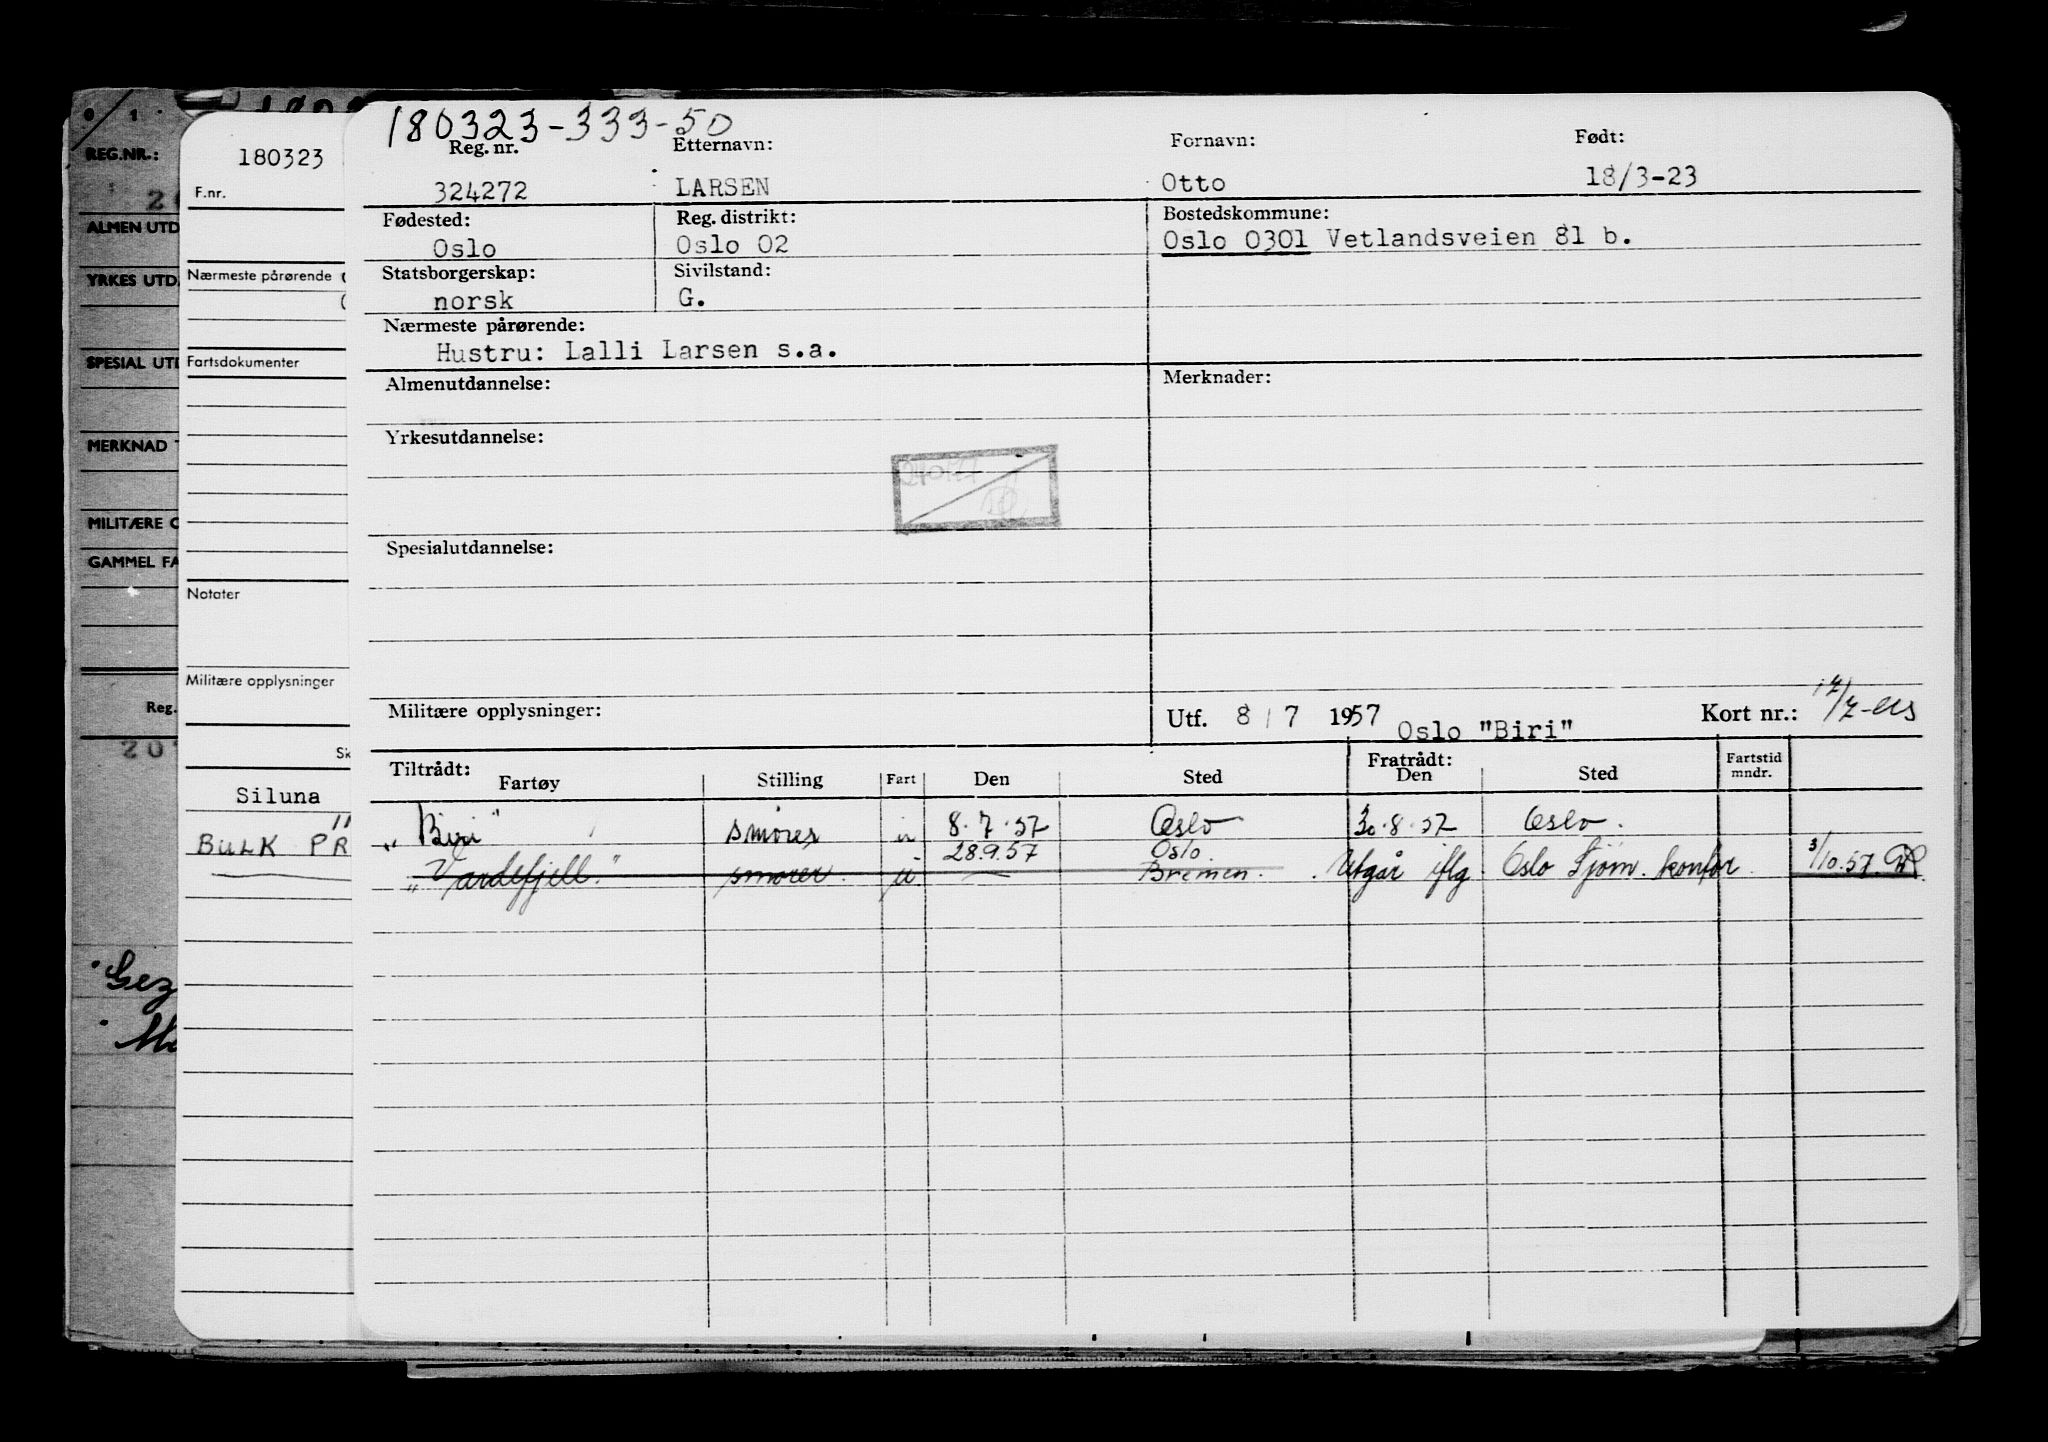 REG.NR.:
ALMEN UTD
YRKES UTD
SPESIAL UTD
MERKNAD
MILITÆRE O
GAMMEL FA
Reg.
Gez
180323
F.nr.
Nærmeste pårørende
Fartsdokumenter
Notater
Militære opplysninger
Sk
Siluna
BULK PR
180323-333-50
Reg. nr. Etternavn: Fornavn: Født:
324272 LARSEN Otto 18/3-23
Fødested: Reg. distrikt: Bostedskommune:
Oslo Oslo 02 Oslo 0301 Vetlandsveien 81 b.
Statsborgerskap: Sivilstand:
norsk G.
Nærmeste pårørende:
Hustru: Lalli Larsen s.a.
Almenutdannelse: Merknader:
Yrkesutdannelse:
Spesialutdannelse:
Militære opplysninger: Utf. 8/7 1957 Oslo "Biri" Kort nr.:
Tiltrådt: Fratrådt: Fartstid
Fartøy Stilling Fart Den Sted Den Sted mndr.
"Biri" smører in 8.7.57 Oslo 30.8.57 Oslo.
28.9.57 Oslo.
"Vardefjell." smører. u. Bremen. Utgår iflg. Oslo Sjøm. kontor 3/10.57.